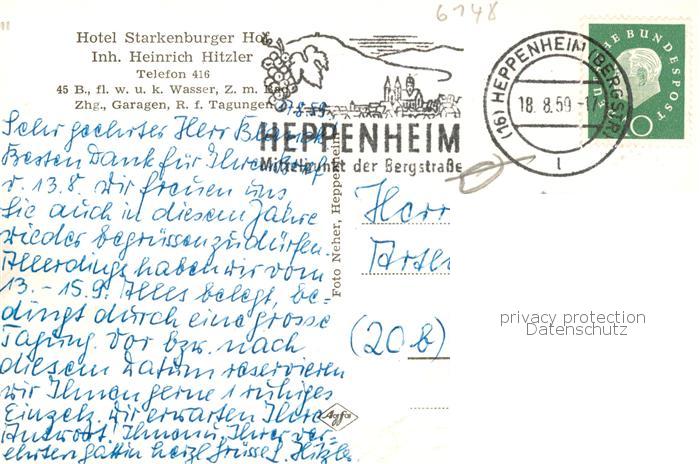 6148
Hotel Starkenburger Hof
Inh. Heinrich Hitzler
Telefon 416
45 B., fl. w. u. k. Wasser, Z. m. Bad
Zhg., Garagen, R. f. Tagungen
17.8.59
Sehr geehrter Herr
Besten Dank für Ihren
v. 13.8. Wir freuen uns
Sie auch in diesem Jahre
wieder begrüssen zu dürfen.
Allerdings haben wir vom
13. - 15.9. Alles belegt, be-
dingt durch eine grosse
Tagung. Vor bzw. nach
diesem Datum reservieren
wir Ihnen gerne 1 ruhiges
Einzelz. Wir erwarten Ihre
Antwort! Ihnen u. Ihrer ver-
ehrten Gattin herzl. Grüsse L. Hitzler.
HEPPENHEIM
Mittelpunkt der Bergstraße
Foto Neher, Heppenheim
Agfa
(16) HEPPENHEIM (BERGSTR)
18. 8. 59 -17
1
DEUTSCHE BUNDESPOST
Herr
(20b)
privacy protection
Datenschutz